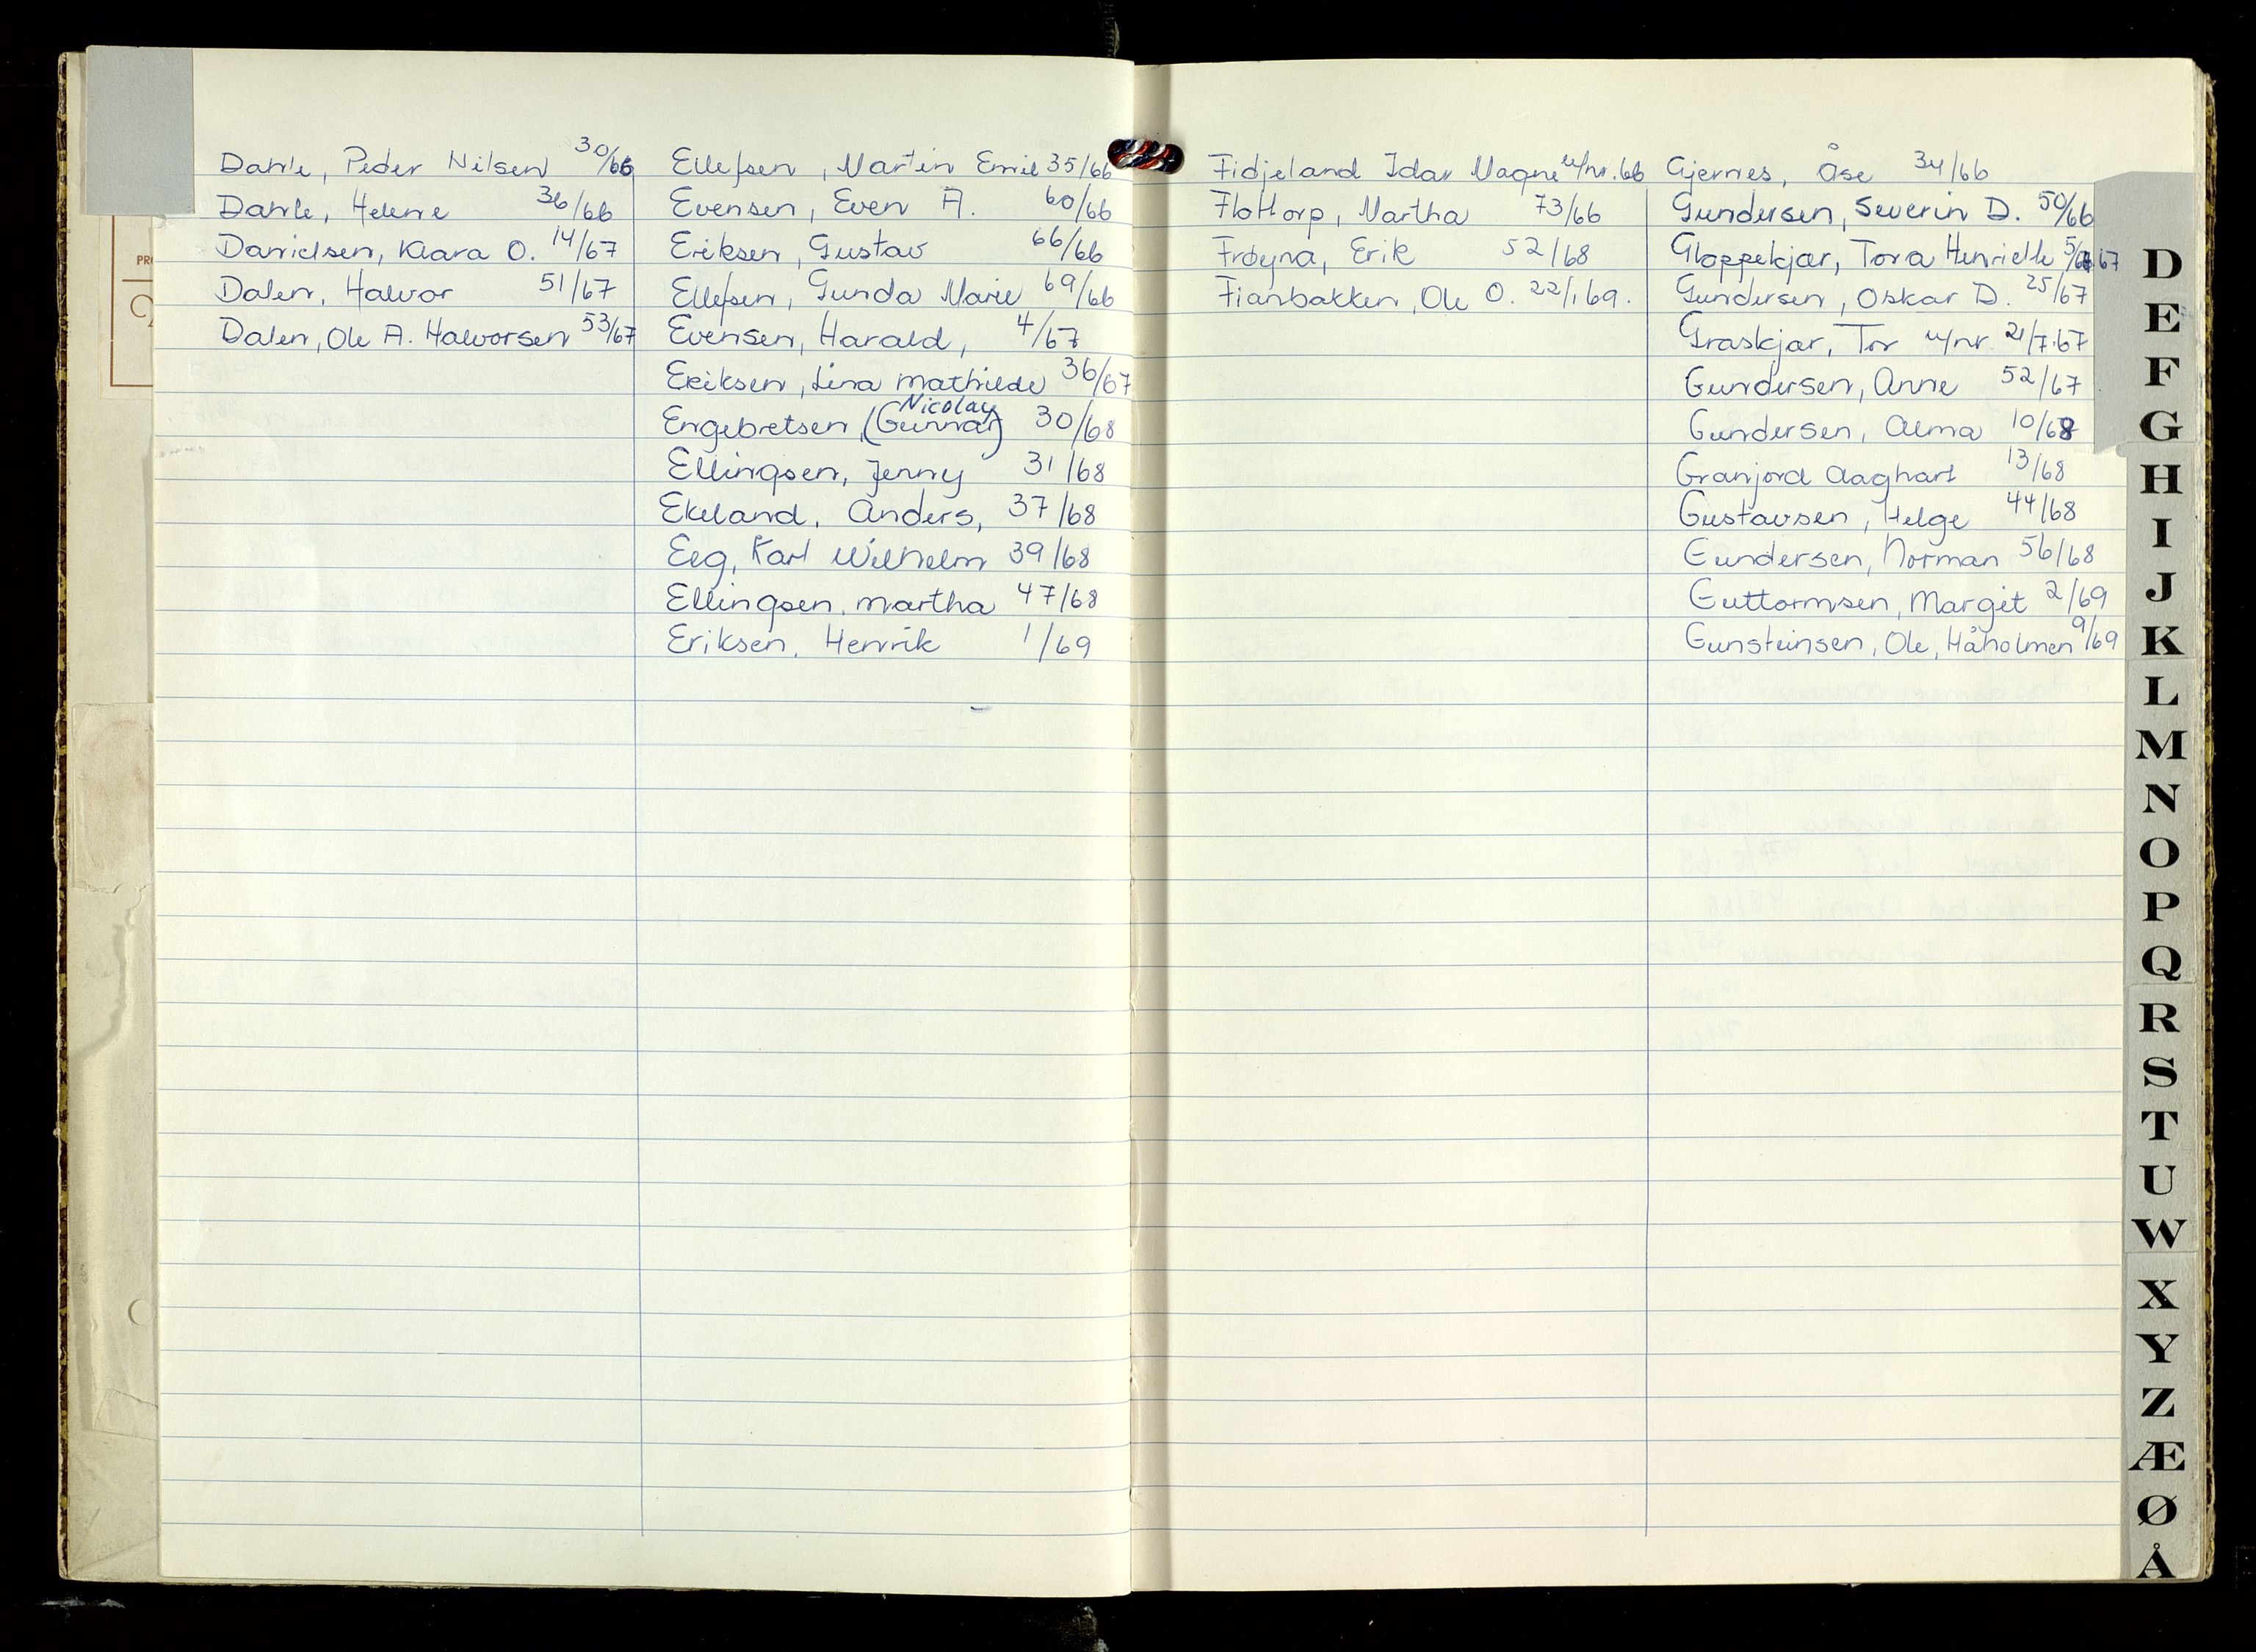 Dahle, Peder Nilsen 30/66
Dahle, Helene 36/66
Danielsen, Klara O. 14/67
Dalen, Halvor 51/67
Dalen, Ole A. Halvorsen 53/67
Ellefsen, Martin Emil 35/66
Evensen, Even A. 60/66
Eriksen, Gustav 66/66
Ellefsen, Gunda Marie 69/66
Evensen, Harald, 4/67
Eriksen, Lina Mathilde 36/67
Nicolay
Engebretsen, (Gunnar) 30/68
Ellingsen, Jenny 31/68
Ekeland, Anders, 37/68
Eeg, Karl Wilhelm 39/68
Ellingsen, Martha 47/68
Eriksen, Henrik 1/69
Fidjeland Idar Magne u/nr. 66
Flottorp, Martha 73/66
Frøyna, Erik 52/68
Fianbakken, Ole O. 22/1 69.
Gjernes, Åse 34/66
Gundersen, Severin D. 50/66
Gloppekjær, Tora Henriette 5/67
Gundersen, Oskar D. 25/67
Graskjær, Tor u/nr 21/7.67
Gundersen, Anne 52/67
Gundersen, Alma 10/68
Granjord Aaghart 13/68
Gustavsen, Helge 44/68
Gundersen, Norman 56/68
Guttormsen, Margit 2/69
Gunsteinsen, Ole, Håholmen 9/69
D
E
F
G
H
I
J
K
L
M
N
O
P
Q
R
S
T
U
W
X
Y
Z
Æ
Ø
Å